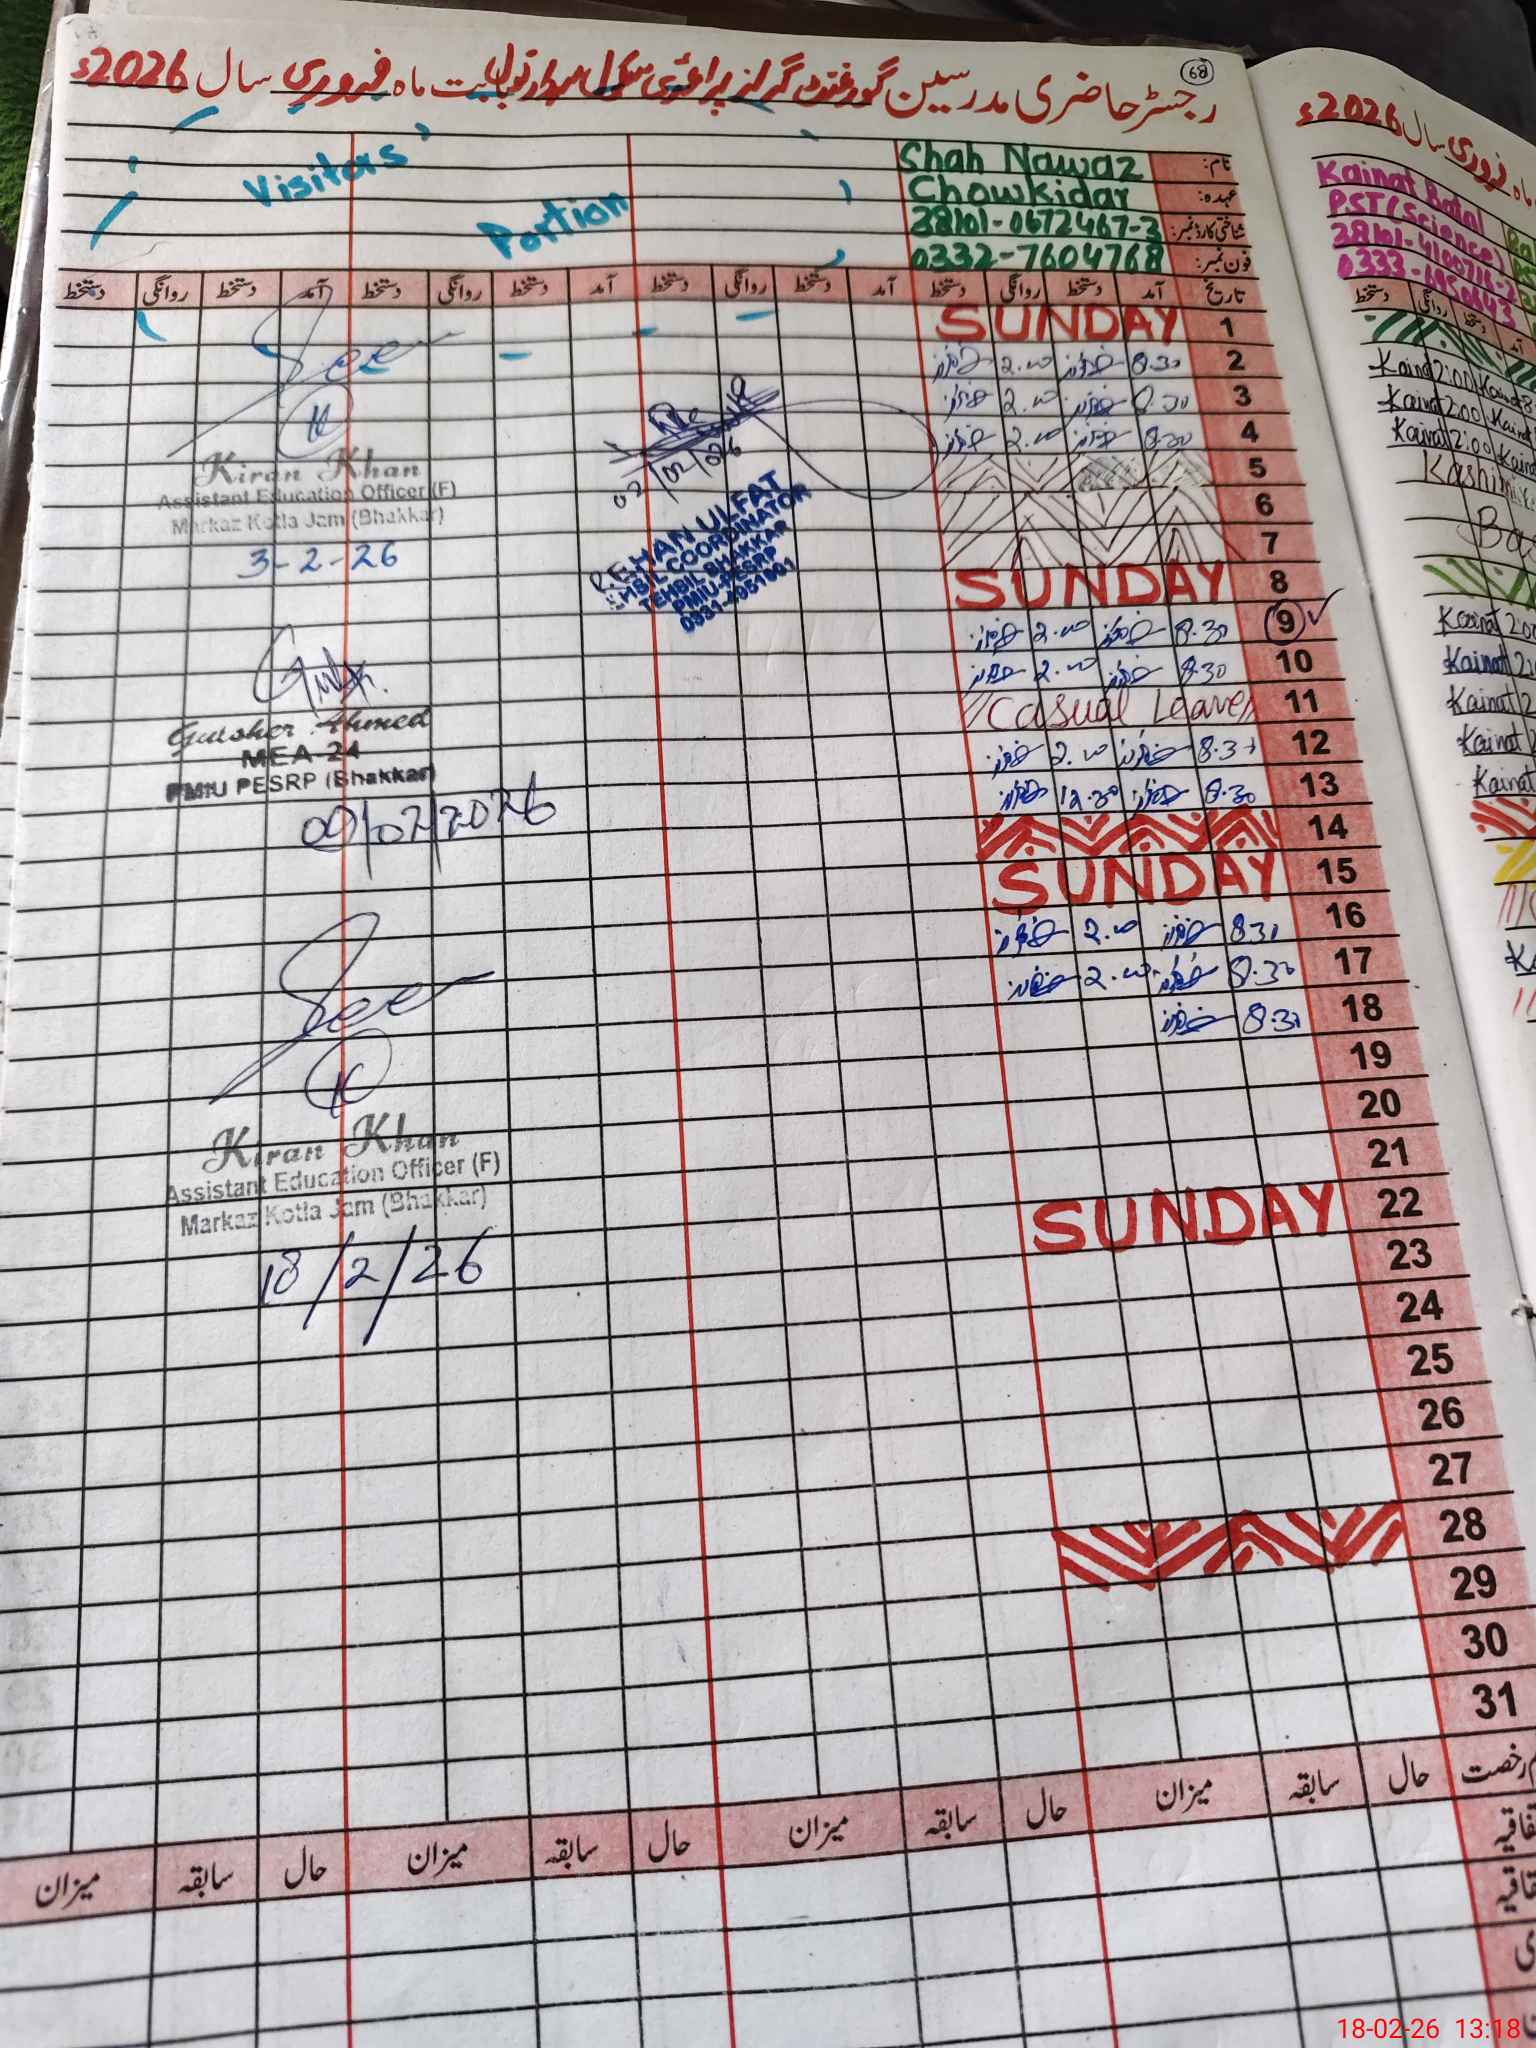 رجسٹر حاضری مدرسین گورنمنٹ گرلز پرائمری سکول سردار نوتک بابت ماہ فروری سال 2026ء
68
Visitors
Portion
نام: Shah Nawaz
عہدہ: Chowkidar
شناختی کارڈ نمبر: 38101-0672467-3
فون نمبر: 0332-7604768
تاریخ آمد دستخط روانگی دستخط آمد دستخط روانگی دستخط آمد دستخط روانگی دستخط آمد دستخط روانگی دستخط
1 SUNDAY
2 8.30 2.00
3 8.30 2.00
4 8.30 2.00
5
6
7
8 SUNDAY
9 8.30 2.00
10 8.30 2.00
11 Casual Leave
12 8.30 2.00
13 8.30 12.30
14
15 SUNDAY
16 8.30 2.00
17 8.30 2.00
18 8.30
19
20
21
22 SUNDAY
23
24
25
26
27
28
29
30
31
See
Kiran Khan
Assistant Education Officer (F)
Markaz Kotla Jam (Bhakkar)
3-2-26
02/02/026
REHAN ULFAT
TEHSIL COORDINATOR
TEHSIL BHAKKAR
PMIU-PESRP
Gulsher Ahmed
MEA-24
PMIU PESRP (Bhakkar)
09/02/2026
See
Kiran Khan
Assistant Education Officer (F)
Markaz Kotla Jam (Bhakkar)
18/2/26
رخصت حال سابقہ میزان حال سابقہ میزان حال سابقہ میزان حال سابقہ میزان
ماہ فروری سال 2026ء
Kainat Batal
PST (Science)
38101-4100716-2
0333-6950643
دستخط روانگی دستخط آمد
Kainat 2:00 Kainat
Kainat 2:00 Kainat
Kainat 2:00 Kainat
Kashmir
Kainat 2:00
Kainat
Kainat 2
Kainat
Kainat
18-02-26 13:18